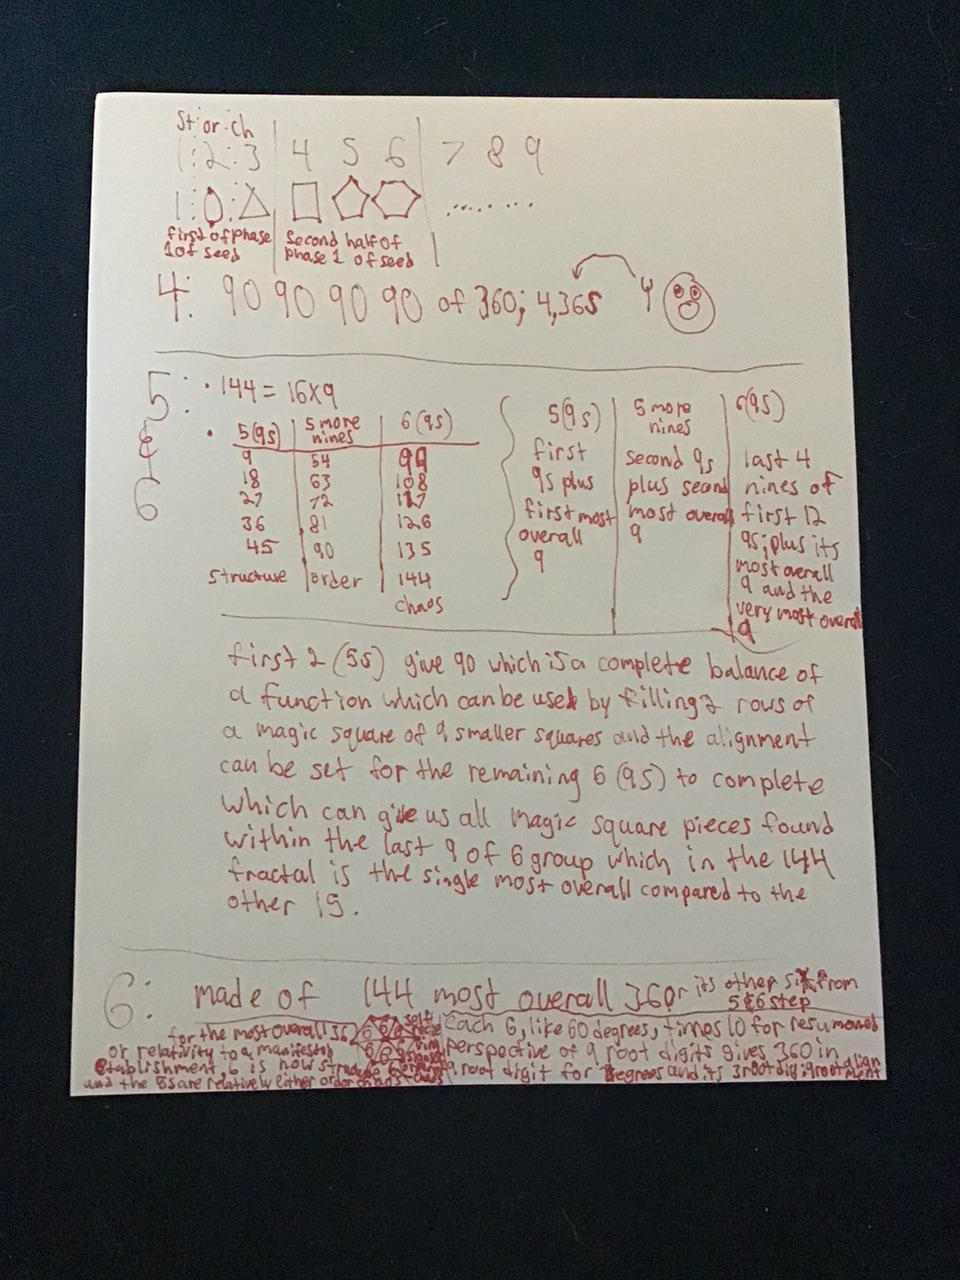 St:or:ch
1:2:3 4 5 6 7 8 9
1:
first of phase
1 of seed
Second half of
phase 1 of seed
4: 90 90 90 90 of 360; 4,365 4
5: • 144 = 16x9
&
6
• 5(9s) 5 more nines 6(9s)
9 54 99
18 63 108
27 72 117
36 81 126
45 90 135
structure order 144
chaos
5(9s)
first
9s plus
first most
overall
9
5 more
nines
second 9s
plus second
most overall
9
6(9s)
last 4
nines of
first 12
9s; plus its
most overall
9 and the
very most overall
9
first 2 (5s) give 90 which is a complete balance of
a function which can be used by filling 2 rows of
a magic square of 9 smaller squares and the alignment
can be set for the remaining 6 (9s) to complete
which can give us all magic square pieces found
within the last 9 of 6 group which in the 144
fractal is the single most overall compared to the
other 15.
6: made of 144 most overall 360r its other six from
5&6 step
for the most overall 36
or relativity to a manifestod
establishment, 6 is now
and the 8s are relatively either order or
6 6 6
6 6 6
self
each 6, like 60 degrees, times 10 for resumond
perspective of 9 root digits gives 360 in
9 root digit for degrees and its 3 root dig:9root align
ment